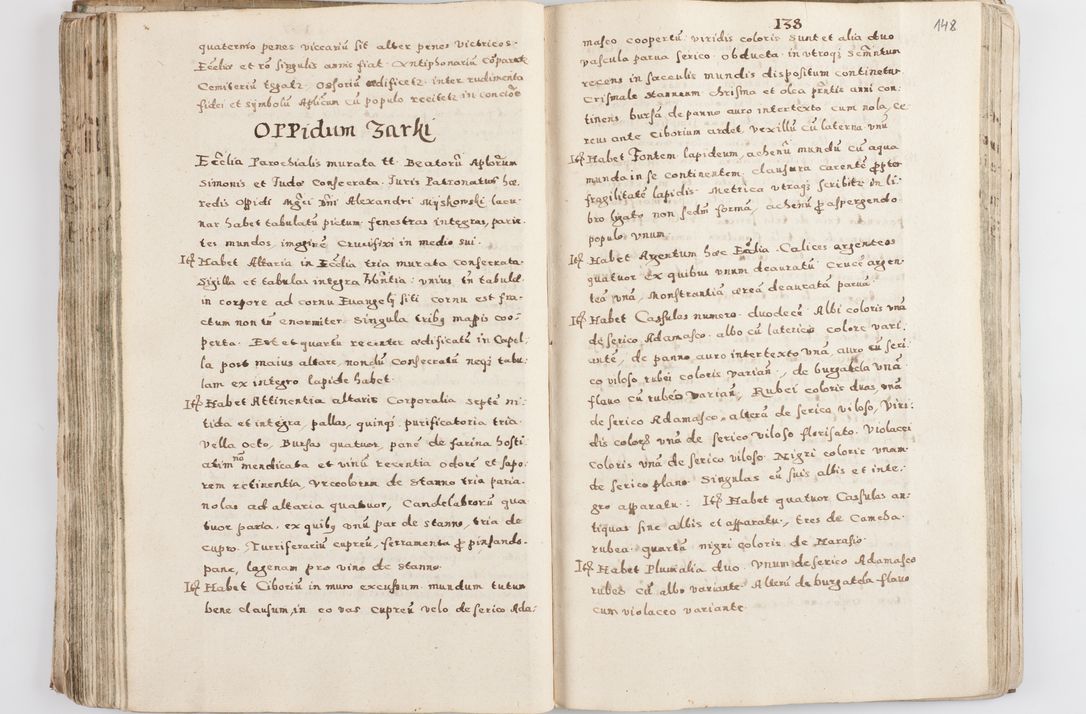 quaternio penes viccariũ sit alter penes Victricos.
Eccliæ et rõ singulis annis fiat. Antiphonariũ cõparetᵣ
Cemiteriũ tegatᵣ. Ossoriũ ædificetᵣ. inter rudimenta
fidei et symbolũ Aplicum cũ populo recitetᵣ in concioẽ
OPPidum Zarki
Ecclia Parochialis murata tt. Beatorũ Aplorũm
Simonis et Judæ Consecrata. Juris Patronatus hæ,
redis Oppidi Mgci Dñi Alexandri Myskowski lacu-
nar habet tabulatũ pictum fenestras integras, parie
tes mundos, imaginẽ Crucifixi in medio sui.
Itẽ Habet Altaria in Ecclia tria murata consecrata.
Sigilla et tabulas integra hñtia: vnius tñ tabulæ
in corpore ad cornu Euangelÿ siti cornu est fra-
ctum non tñ enormiter. Singula tribꝰ mappis coo,
perta. Est et quartũ recenter ædificatũ in Capel,
la post maius altare, nondũ Consecratũ neqꝫ tabu,
lam ex integro lapide habet.
Itẽ Habet Attinentia altaris Corporalia septẽ ni,
tida et integra, pallas, quinqꝫ, purificatoria tria.
Vella octo, Bursas quatuor, panẽ de farina hosti
atim nõ mendicata et vinũ recentia odorẽ et sapo,
rem retinentia, Vrceolorum de stanno tria paria.
nolas ad altaria quatuor, Candelabrorũ qua
tuor paria, ex quibꝰ vnũ par de stanno, tria de
cupro. Turriferariũ cupreũ, ferramenta ꝓ pinsando
pane, lagenam pro vino de stanno.
Itẽ Habet Ciboriũ in muro excussum mundum tutum
bene clausum, in eo vas cupreũ velo de serico Ada,
138
148
masco coopertũ viridis coloris. Sunt et alia duo
vascula parua serico. obducta. in vtroqꝫ Scmñtum
recens in sacculis mundis dispositum continetur
Crismale stanneum chrisma et olea pñtis anni con,
tinens bursã de panno auro intertexto. cum nola, Ce
reus ante Ciborium ardet, vexillũ cũ laterna vnũ
Itẽ Habet Fontem lapideum, achenũ mundũ cũ aqua
munda in se continentem. clausura carentẽ ꝓpter
fragilitatẽ lapidis. Metrica vtraqꝫ scribitᵣ in li,
bro ligato non sedm formã, achenũ ꝓ aspergendo
populo vnum.
Itẽ Habet Argentum hæc Ecclia. Calices argenteos
quatuor ex quibus vnum deauratũ. Crucẽ argen,
teã vnã, Monstrantiã æreã deauratã paruã.
Itẽ Habet Cassulas numero duodecẽ. Albi coloris vnã
de serico Adamasco. albo cũ latericio colore vari,
antẽ, de panno auro intertexto vnã, auro cũ seri,
co viloso, rubei coloris variañ, de burgatela vnã
flauo cũ rubeo variañ, Rubei coloris duas vnã
de serico Adamasco, alterã de serico viloso, Viri,
dis colorꝭ vnã de serico viloso florisato. Violacei
Coloris vnã de serico viloso. Nigri coloris vnam.
de serico plano. Singulas cũ suis albis et inte,
gro apparatu: Itẽ Habet quatuor Cassulas an,
tiquas sine albis et apparatu, tres de Cameha.
rubea. quartã nigri coloris de Harasio.
Itẽ Habet Pluuialia duo. Vnum de serico Adamasco
rubeo cũ albo variante. Alterũ de burgatela flauo
cum violaceo variante.